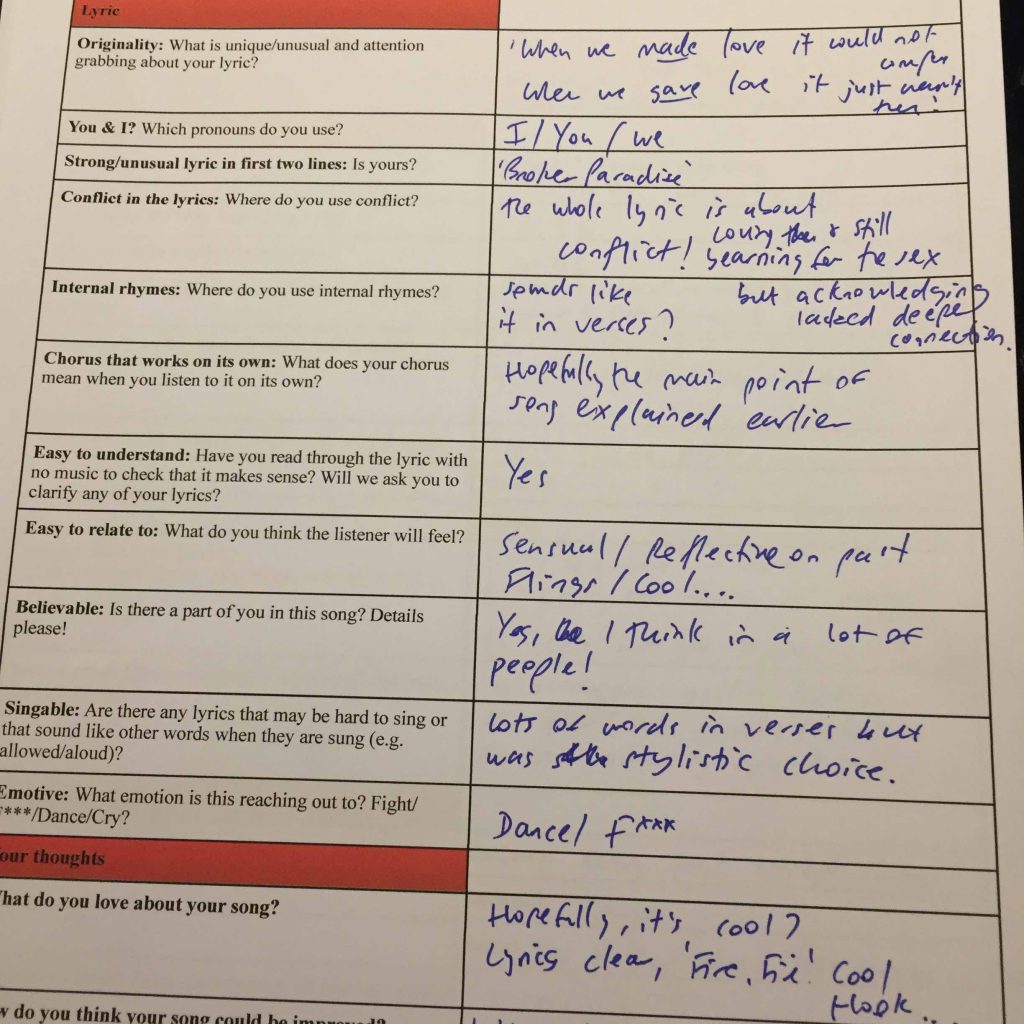 Lyric
Originality: What is unique/unusual and attention
grabbing about your lyric?
'When we made love it could not
When we gave love it just wasn't
You & I? Which pronouns do you use?
I / You / we
Strong/unusual lyric in first two lines: Is yours?
'Broken Paradise'
Conflict in the lyrics: Where do you use conflict?
the whole lyric is about
conflict! loving & still
yearning for the sex
but acknowledging
lacked deeper
connection.
Internal rhymes: Where do you use internal rhymes?
sounds like
it in verses?
Chorus that works on its own: What does your chorus
mean when you listen to it on its own?
Hopefully the main point of
song explained earlier
Easy to understand: Have you read through the lyric with
no music to check that it makes sense? Will we ask you to
clarify any of your lyrics?
Yes
Easy to relate to: What do you think the listener will feel?
Sensual / Reflective on past
Flings / Cool....
Believable: Is there a part of you in this song? Details
please!
Yes, I think in a lot of
people!
Singable: Are there any lyrics that may be hard to sing or
that sound like other words when they are sung (e.g.
allowed/aloud)?
Lots of words in verses but
was stylistic choice.
Emotive: What emotion is this reaching out to? Fight/
***/Dance/Cry?
Dance / F***
our thoughts
hat do you love about your song?
Hopefully, it's cool?
Lyrics clear, 'Fire, Fire' Cool
Hook..
w do you think your song could be improved?